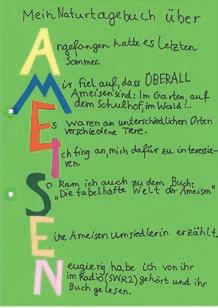 Mein Naturtagebuch über
Angefangen hatte es letzten
Sommer.
Mir fiel auf, dass ÜBERALL
Ameisen sind: Im Garten, auf
dem Schulhof, im Wald!..
Es waren an unterschiedlichen Orten
verschiedene Tiere.
Ich fing an, mich dafür zu interessie-
ren.
So kam ich auch zu dem Buch:
"Die fabelhafte Welt der Ameisen"
Eine Ameisenumsiedlerin erzählt.
Neugierig habe ich von ihr
im Radio (SWR2) gehört und ihr
Buch gelesen.